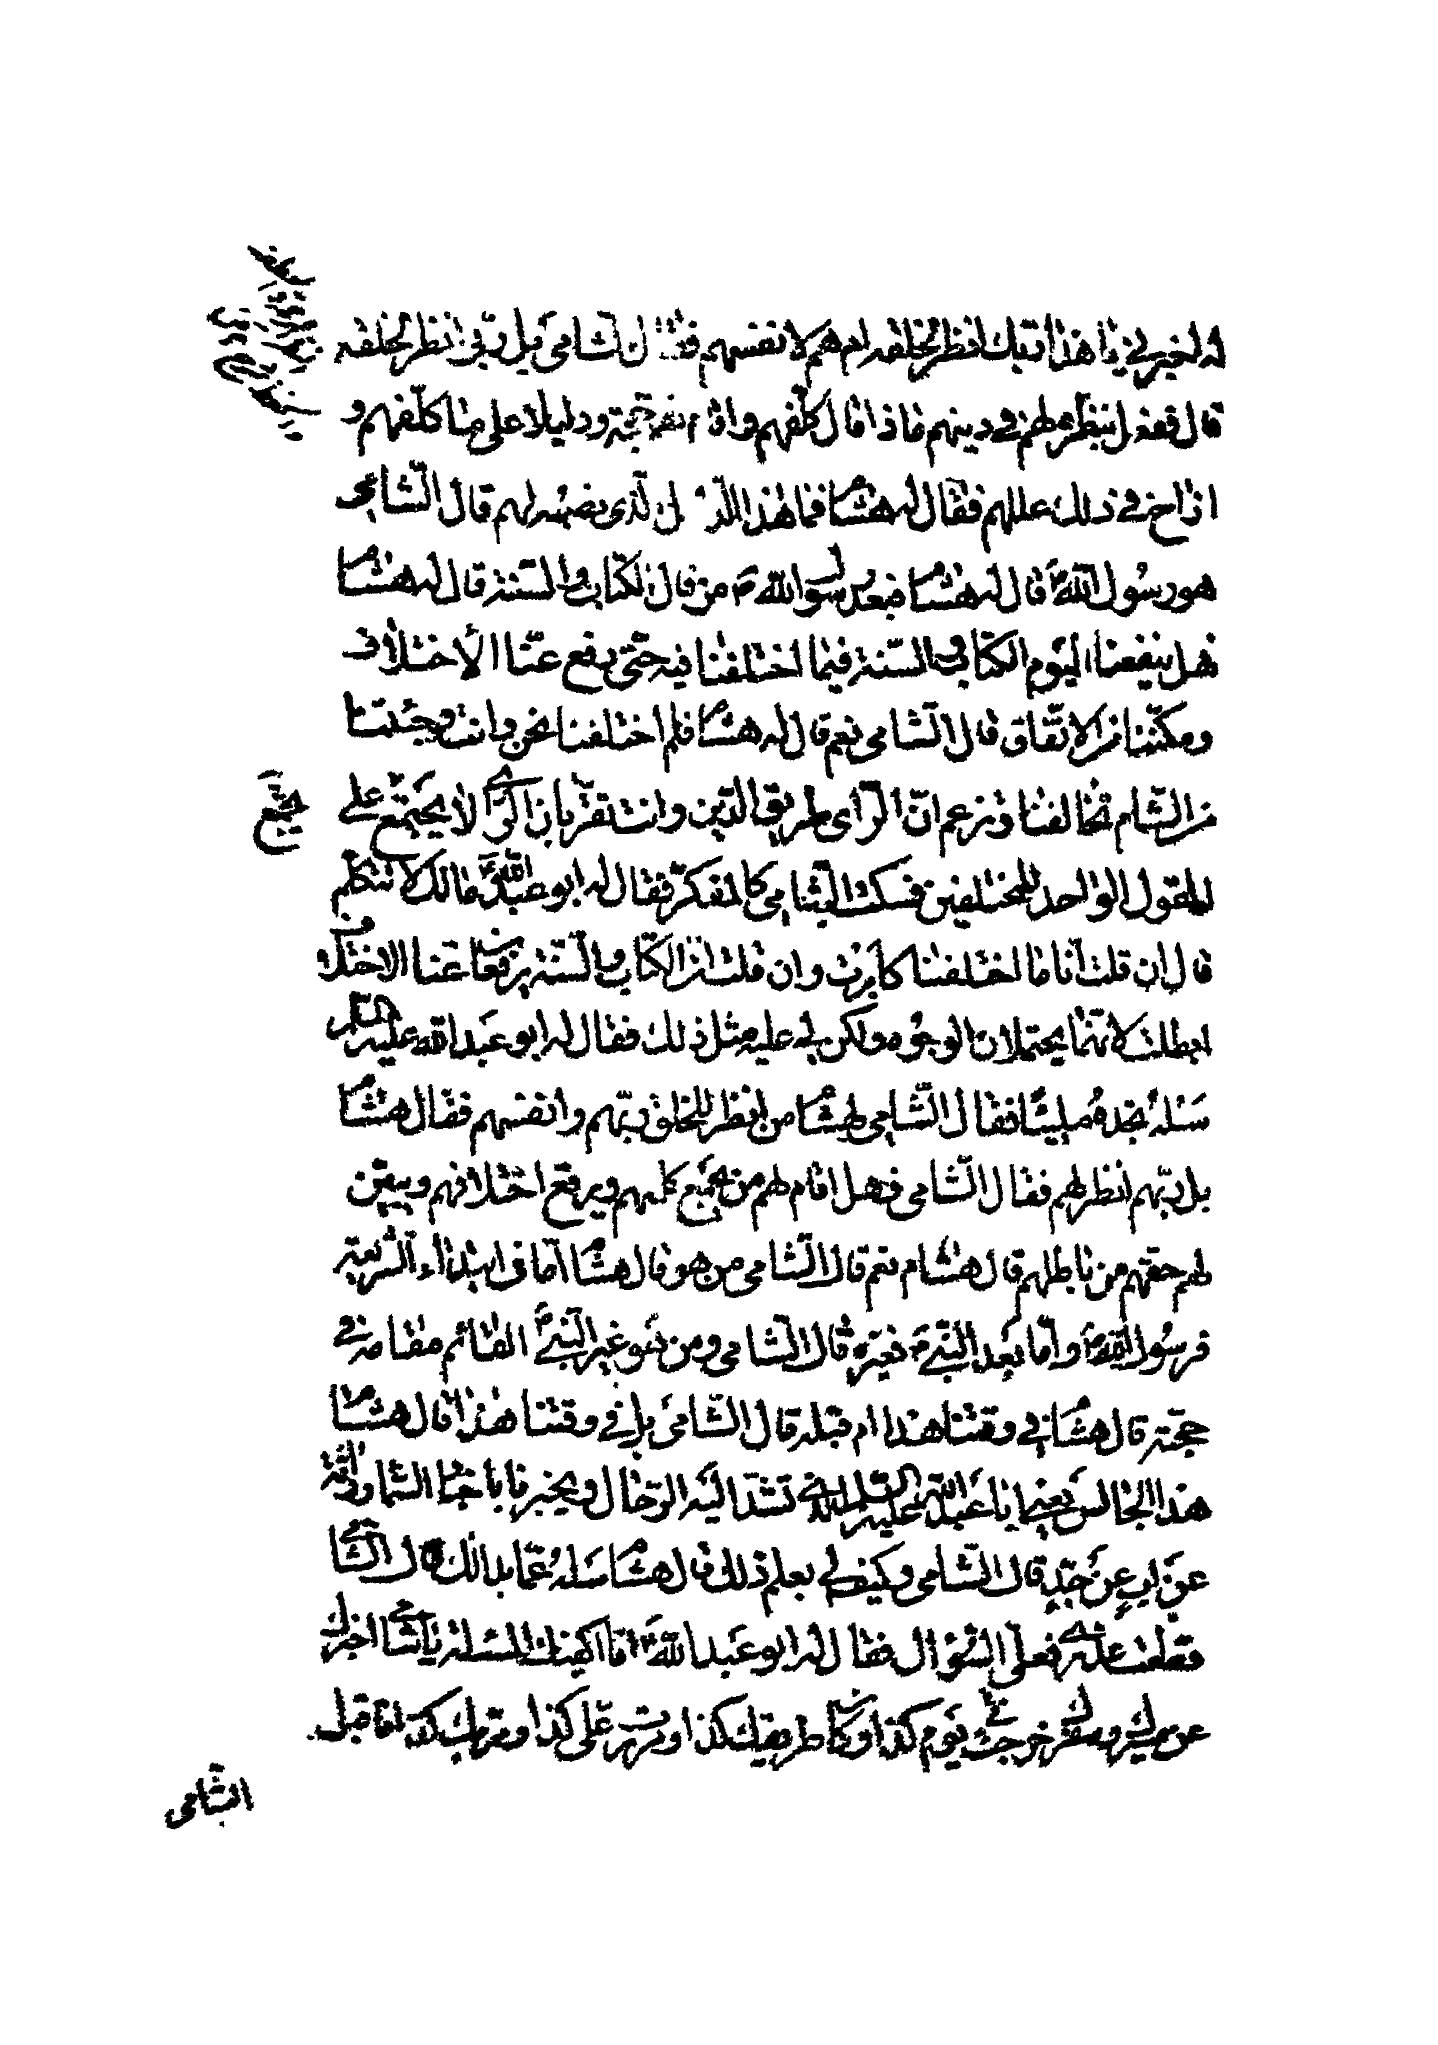 له اخبرني يا هذا اربك انظر لخلقه ام هم لانفسهم فقال الشامي بل ربي انظر لخلقه
قال ففعل بنظره لهم في دينهم ماذا قال كلفهم واقام لهم حجة ودليلا على ما كلفهم و
ازاح في ذلك عللهم فقال له هشام فما هذا الدليل الذي نصبه لهم قال الشامي
هو رسول الله ص قال له هشام فبعد رسول الله ص من قال الكتاب والسنة قال له هشام
فهل ينفعنا اليوم الكتاب والسنة فيما اختلفنا فيه حتى يرفع عنا الاختلاف
ومكننا من الاتفاق قال الشامي نعم قال له هشام فلم اختلفنا نحن وانت وجئتنا
من الشام تخالفنا وتزعم ان الراى طريق الدين وانت تقر بان الراى لا يجتمع على
القول الواحد المختلفين فسكت الشامي كالمفكر فقال له ابو عبدالله ع مالك لا تتكلم
قال ان قلت انا ما اختلفنا كابرت وان قلت ان الكتاب والسنة يرفعان عنا الاختلاف
ابطلت لانهما يحتملان الوجوه ولكن لي عليه مثل ذلك فقال له ابو عبدالله عليه السلام
سله تجده مليئا فقال الشامي لهشام من انظر للخلق ربهم او انفسهم فقال هشام
بل ربهم انظر لهم فقال الشامي فهل اقام لهم من يجمع كلمتهم ويرفع اختلافهم ويبين
لهم حقهم من باطلهم قال هشام نعم قال الشامي من هو قال هشام اما في ابتداء الشريعة
فرسول الله ص واما بعد النبي ص فعترته قال الشامي ومن هو غير النبي ص القائم مقامه في
حجته قال هشام في وقتنا هذا ام قبله قال الشامي بل في وقتنا هذا قال هشام
هذا الجالس يعني ابا عبدالله عليه السلام الذي تشد اليه الرحال ويخبرنا باخبار السماء وراثة
عن اب عن جد قال الشامي وكيف لي بعلم ذلك قال هشام سله عما بدا لك قال الشامي
قطعت عذري فعلي السؤال فقال له ابو عبدالله ع انا اكفيك المسئلة يا شامي اخبرك
عن مسيرك وسفرك خرجت في يوم كذا وكان طريقك كذا ومررت على كذا ومر بك كذا فاقبل
يجتمع
الشامي